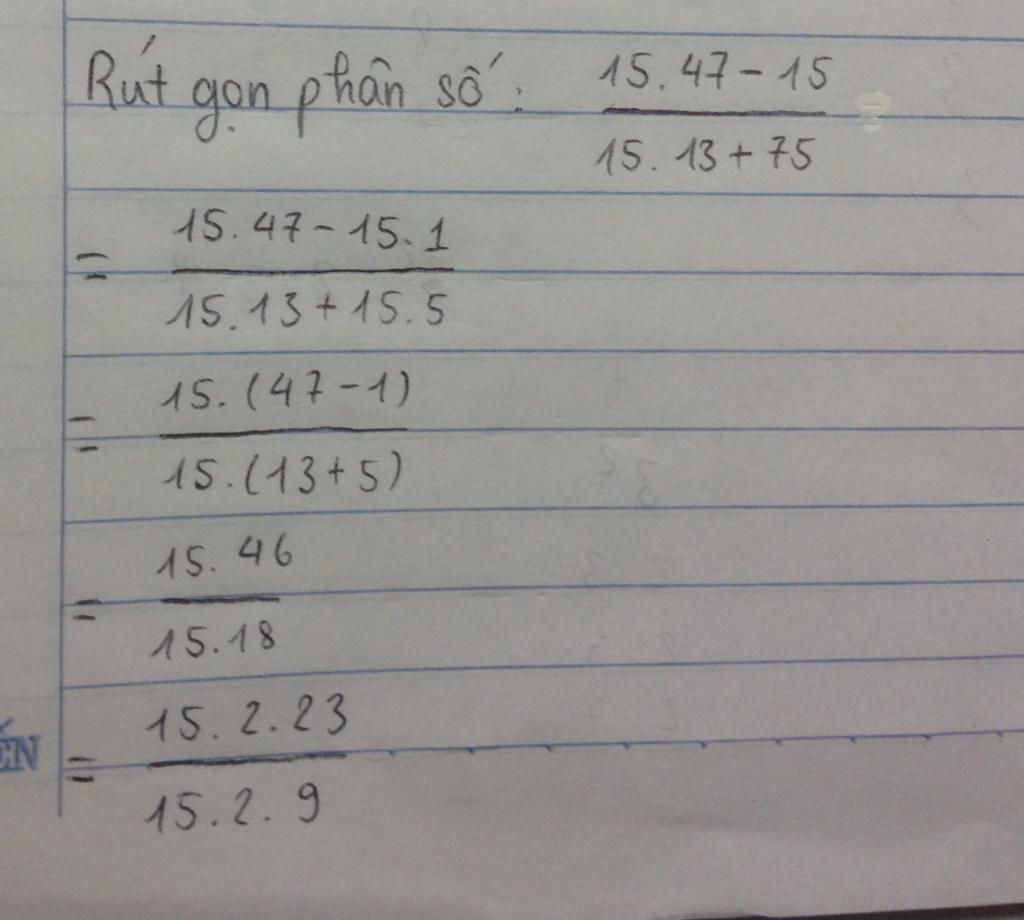 Rút gọn phân số: 15.47-15
15.13+75
= 15.47-15.1
15.13+15.5
= 15.(47-1)
15.(13+5)
= 15.46
15.18
= 15.2.23
15.2.9
ẾN